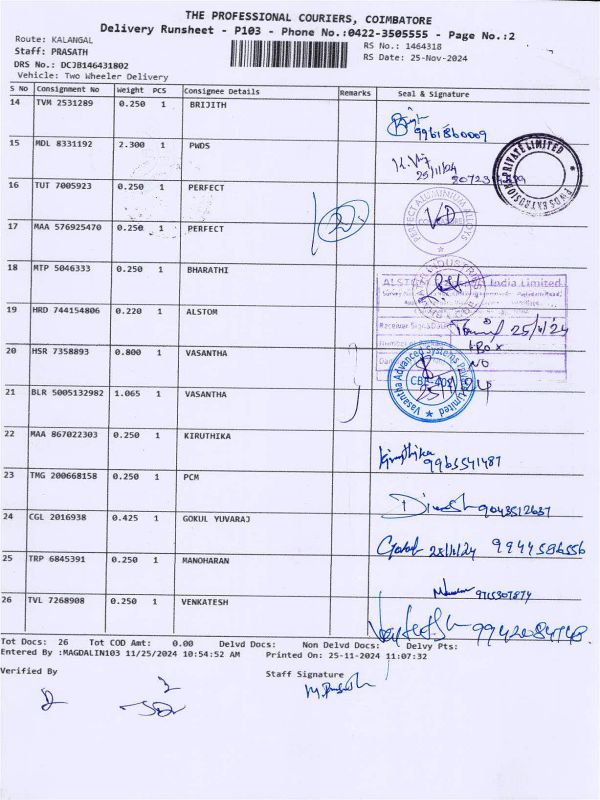 THE PROFESSIONAL COURIERS, COIMBATORE
Delivery Runsheet - P103 - Phone No.:0422-3505555 - Page No.:2
Route: KALANGAL
RS No.: 1464318
Staff: PRASATH
RS Date: 25-Nov-2024
DRS No.: DCJB146431802
Vehicle: Two Wheeler Delivery
S No Consignment No Weight PCS Consignee Details Remarks Seal & Signature
14 TVM 2531289 0.250 1 BRIJITH
9961860009
15 MDL 8331192 2.300 1 PWDS
25/11/24
PRIVATE LIMITED
16 TUT 7005923 0.250 1 PERFECT
17 MAA 576925470 0.250 1 PERFECT
18 MTP 5046333 0.250 1 BHARATHI
ALSTOM India Limited
19 HRD 744154806 0.220 1 ALSTOM
25/11/24
20 HSR 7358893 0.800 1 VASANTHA
NO
Vasantha Advanced Systems Private Limited
CBE-402
21 BLR 5005132982 1.065 1 VASANTHA
22 MAA 867022303 0.250 1 KIRUTHIKA
Kiruthika
9965541487
23 TMG 200668158 0.250 1 PCM
Dinesh 9043512637
24 CGL 2016938 0.425 1 GOKUL YUVARAJ
Gokul 25/11/24 9944586556
25 TRP 6845391 0.250 1 MANOHARAN
9715307874
26 TVL 7268908 0.250 1 VENKATESH
Venkatesh 9942084748
Tot Docs: 26 Tot COD Amt: 0.00 Delvd Docs: Non Delvd Docs: Delvy Pts:
Entered By :MAGDALIN103 11/25/2024 10:54:52 AM Printed On: 25-11-2024 11:07:32
Verified By
Staff Signature
M. Prasath